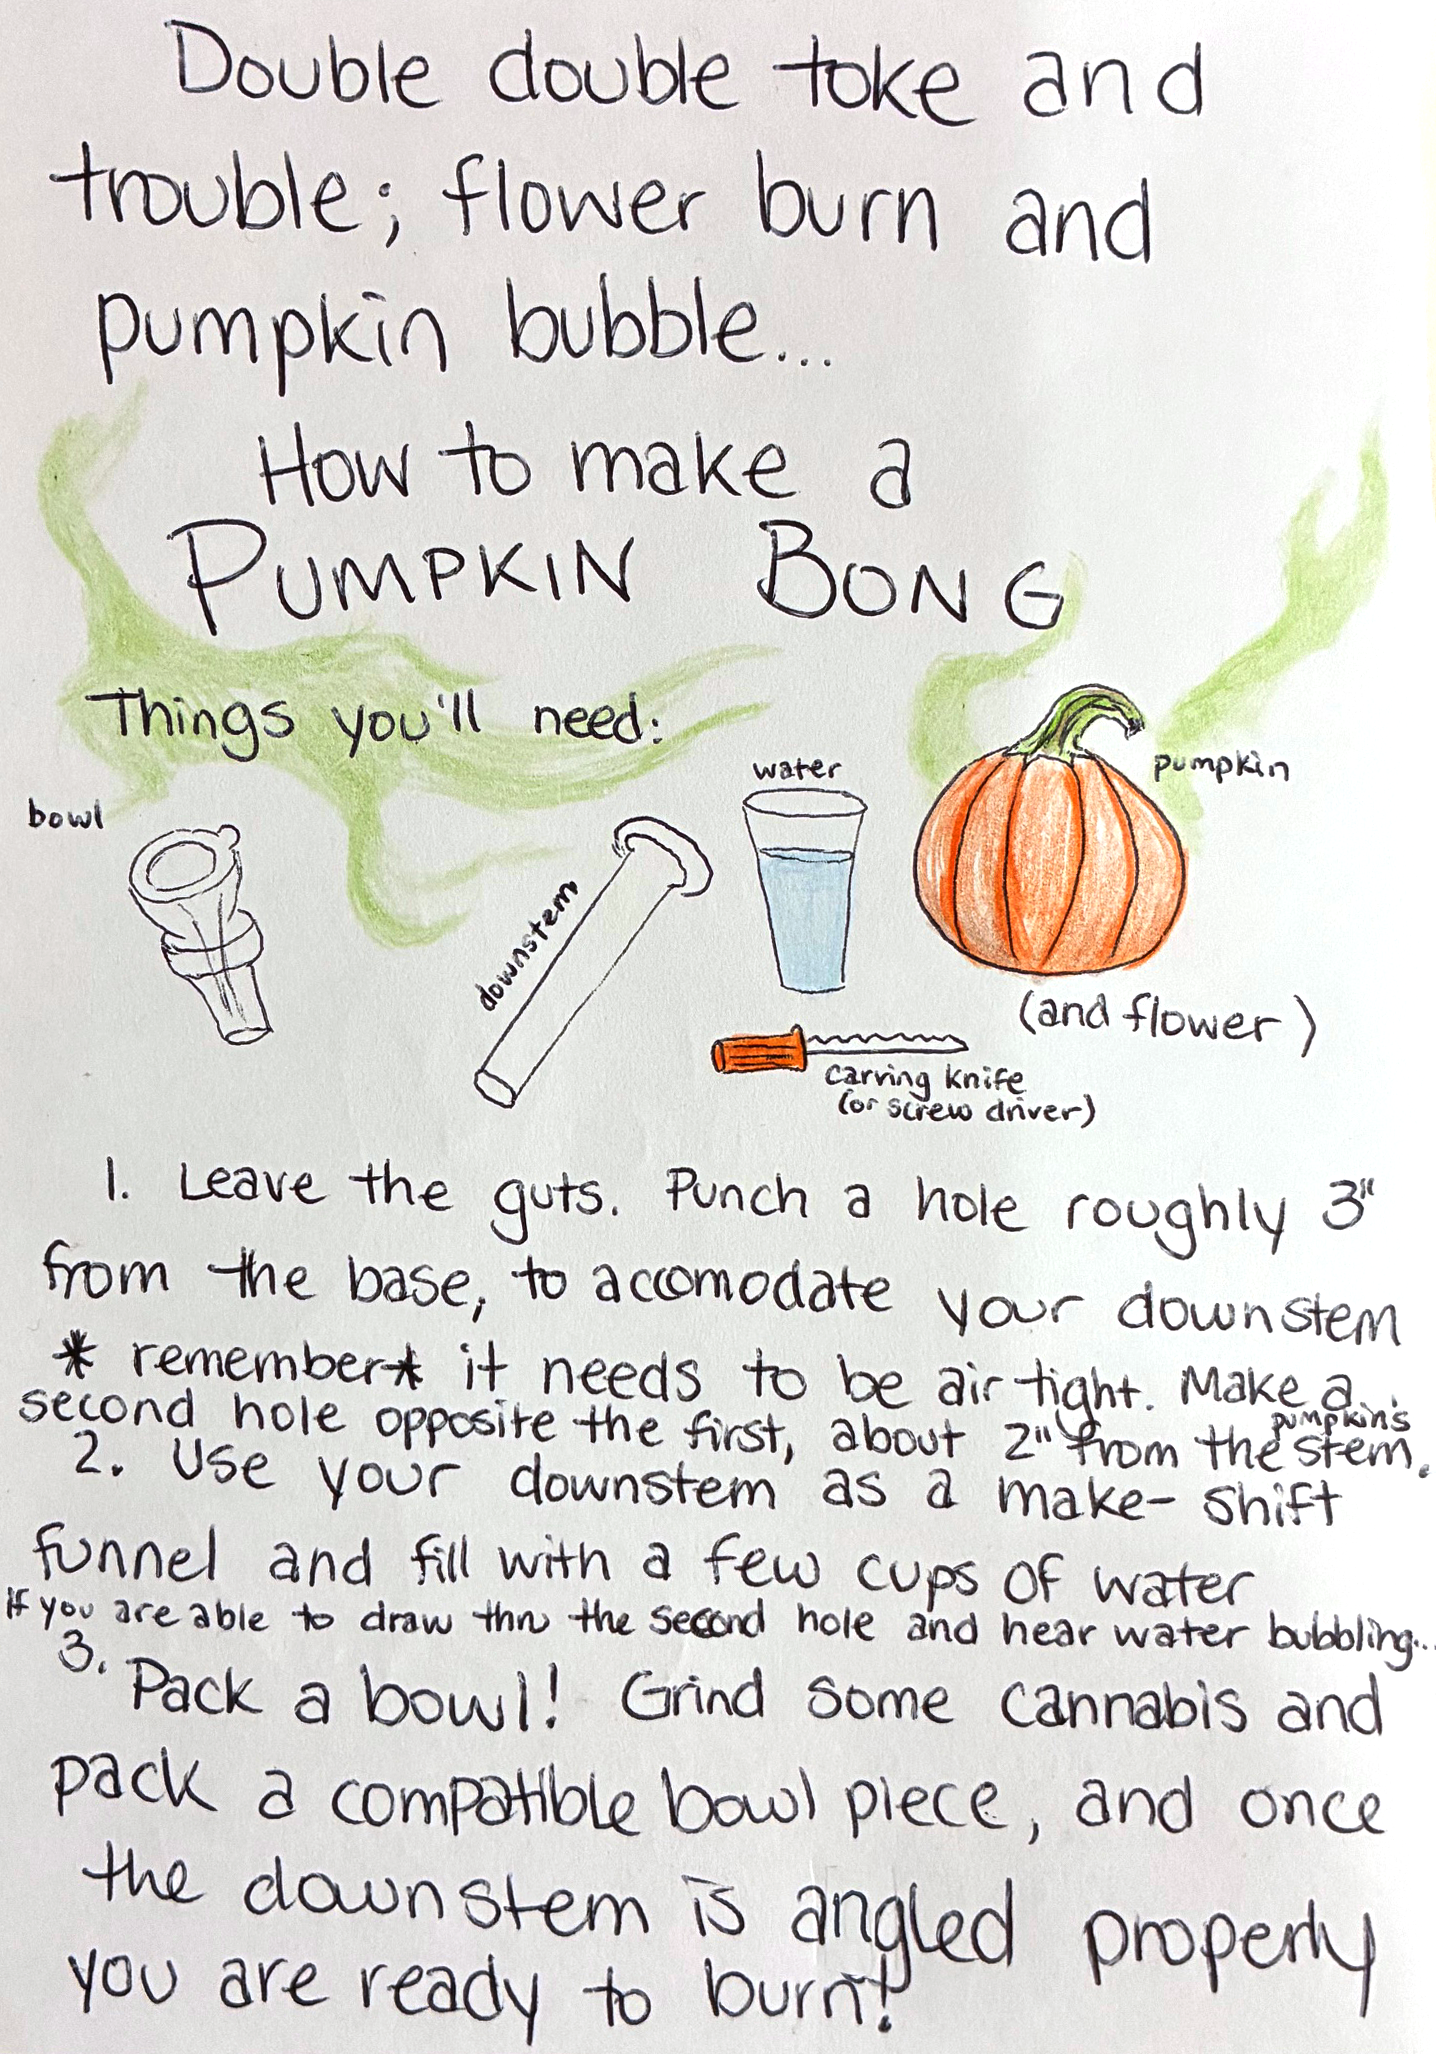 Double double toke and
trouble; flower burn and
pumpkin bubble...
How to make a
PUMPKIN BONG
Things you'll need:
bowl
downstem
water
pumpkin
(and flower)
carving knife
(or screw driver)
1. Leave the guts. Punch a hole roughly 3"
from the base, to accomodate your downstem
* remember* it needs to be air tight. Make a
second hole opposite the first, about 2" from the pumpkin's stem.
2. Use your downstem as a make-shift
funnel and fill with a few cups of water
If you are able to draw thru the second hole and hear water bubbling...
3. Pack a bowl! Grind some cannabis and
pack a compatible bowl piece, and once
the downstem is angled properly
you are ready to burn!